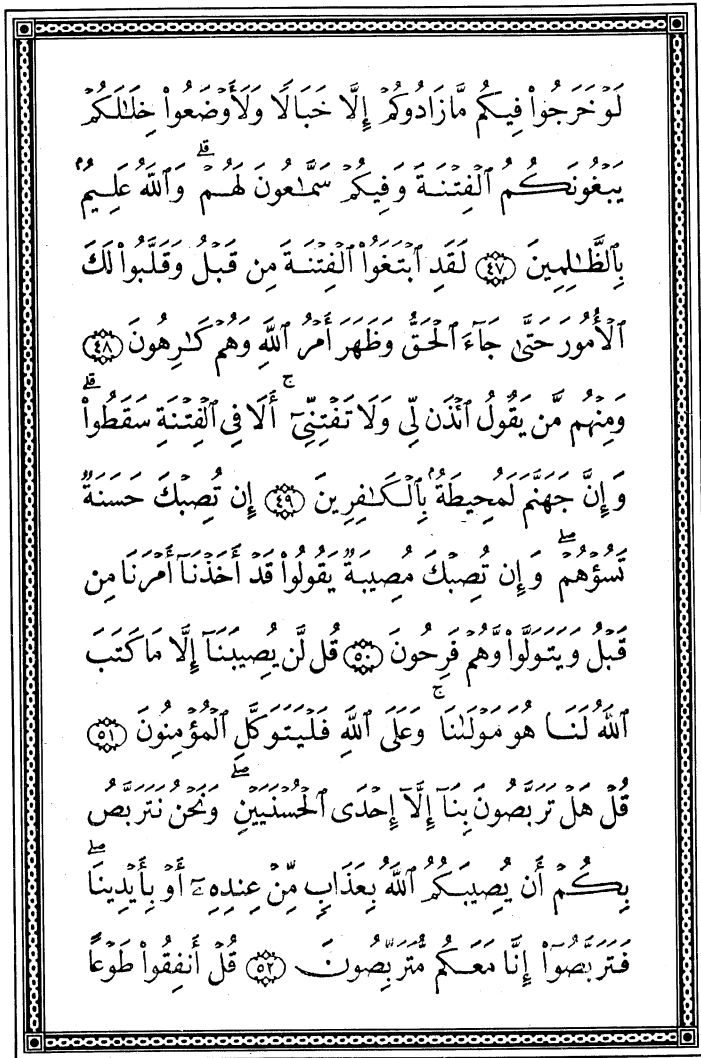 لَوۡ خَرَجُواْ فِيكُم مَّا زَادُوكُمۡ إِلَّا خَبَالٗا وَلَأَوۡضَعُواْ خِلَٰلَكُمۡ
يَبۡغُونَكُمُ ٱلۡفِتۡنَةَ وَفِيكُمۡ سَمَّٰعُونَ لَهُمۡۗ وَٱللَّهُ عَلِيمُۢ
بِٱلظَّٰلِمِينَ ﴿٤٧﴾ لَقَدِ ٱبۡتَغَوُاْ ٱلۡفِتۡنَةَ مِن قَبۡلُ وَقَلَّبُواْ لَكَ
ٱلۡأُمُورَ حَتَّىٰ جَآءَ ٱلۡحَقُّ وَظَهَرَ أَمۡرُ ٱللَّهِ وَهُمۡ كَٰرِهُونَ ﴿٤٨﴾
وَمِنۡهُم مَّن يَقُولُ ٱئۡذَن لِّي وَلَا تَفۡتِنِّيٓۚ أَلَا فِي ٱلۡفِتۡنَةِ سَقَطُواْۗ
وَإِنَّ جَهَنَّمَ لَمُحِيطَةُۢ بِٱلۡكَٰفِرِينَ ﴿٤٩﴾ إِن تُصِبۡكَ حَسَنَةٞ
تَسُؤۡهُمۡۖ وَإِن تُصِبۡكَ مُصِيبَةٞ يَقُولُواْ قَدۡ أَخَذۡنَآ أَمۡرَنَا مِن
قَبۡلُ وَيَتَوَلَّواْ وَّهُمۡ فَرِحُونَ ﴿٥٠﴾ قُل لَّن يُصِيبَنَآ إِلَّا مَا كَتَبَ
ٱللَّهُ لَنَا هُوَ مَوۡلَىٰنَاۚ وَعَلَى ٱللَّهِ فَلۡيَتَوَكَّلِ ٱلۡمُؤۡمِنُونَ ﴿٥١﴾
قُلۡ هَلۡ تَرَبَّصُونَ بِنَآ إِلَّآ إِحۡدَى ٱلۡحُسۡنَيَيۡنِۖ وَنَحۡنُ نَتَرَبَّصُ
بِكُمۡ أَن يُصِيبَكُمُ ٱللَّهُ بِعَذَابٖ مِّنۡ عِندِهِۦٓ أَوۡ بِأَيۡدِينَاۖ
فَتَرَبَّصُوٓاْ إِنَّا مَعَكُم مُّتَرَبِّصُونَ ﴿٥٢﴾ قُلۡ أَنفِقُواْ طَوۡعًا